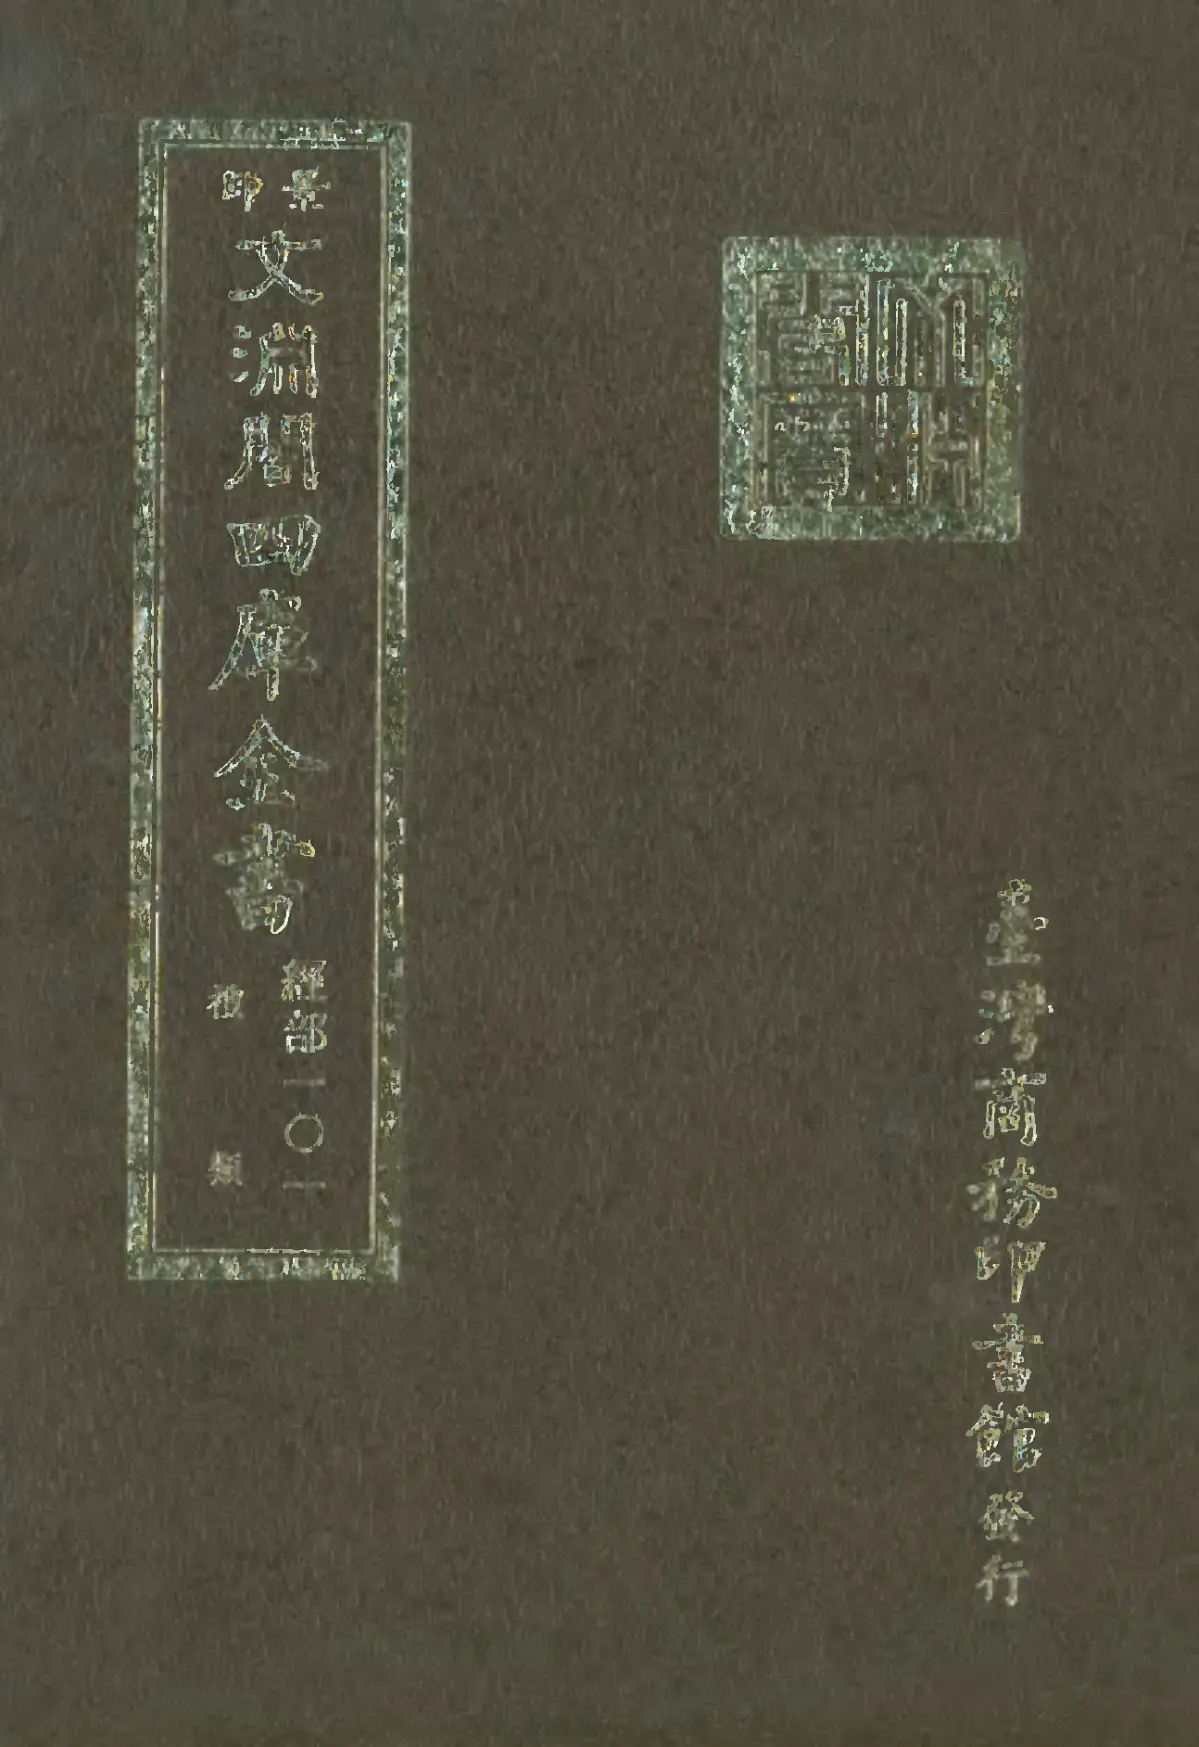 臺灣商務印書館發行
景印
文淵閣四庫全書
經部一〇一
禮類